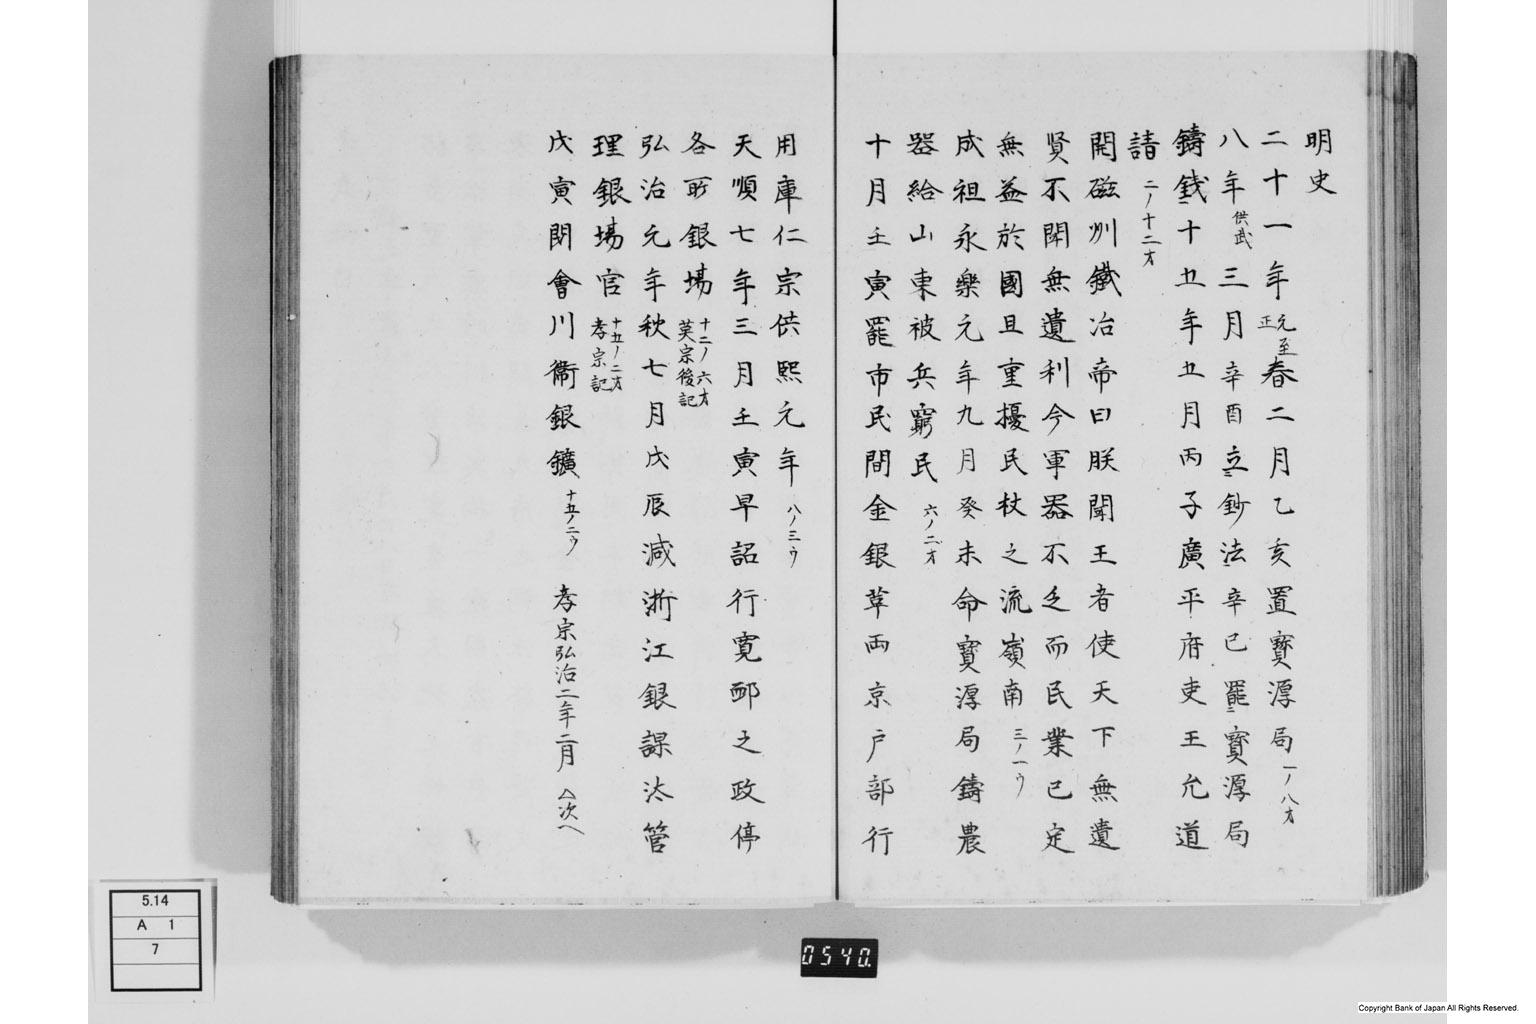 明史
二十一年 元至正 春二月乙亥置寳源局 一ノ八オ
八年 供武 三月辛酉立鈔法辛巳罷寳源局
鑄銭十五年五月丙子廣平府吏王允道
請 二ノ十二オ
開磁州鐵冶帝曰朕聞王者使天下無遺
賢不聞無遺利今軍器不乏而民業已定
無益於國且重擾民杖之流嶺南 三ノ一ウ
成祖永樂元年九月癸未命寳源局鑄農
器給山東被兵窮民 六ノ二オ
十月壬寅罷市民間金銀草両京戸部行
用庫仁宗供熙元年 八ノ三ウ
天順七年三月壬寅早詔行寛邮之政停
各所銀場 十二ノ六オ 英宗後記
弘治元年秋七月戊辰減浙江銀課汰管
理銀場官 十五ノ二オ 孝宗記
戊寅閉會川衛銀鑛 十五ノ二ウ 孝宗弘治二年二月 △次へ
5.14
A 1
7
0540
Copyright Bank of Japan All Rights Reserved.